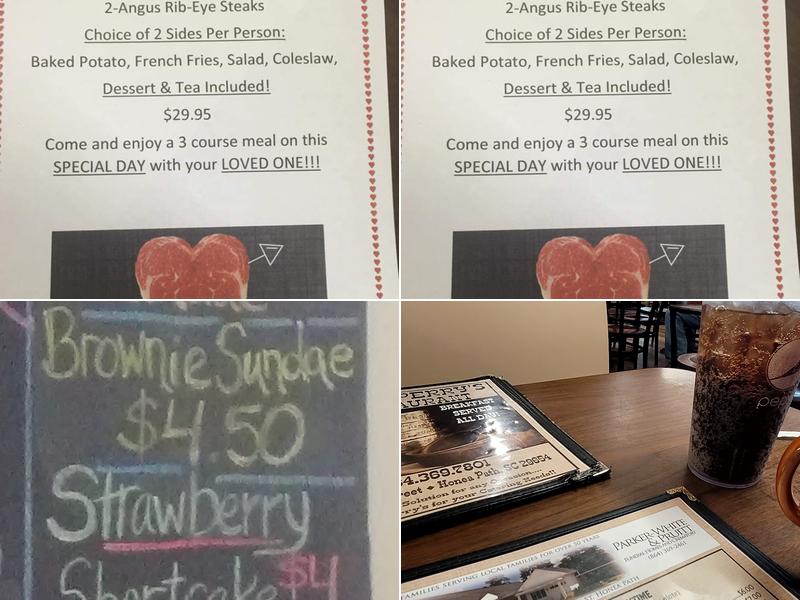 2-Angus Rib-Eye Steaks
Choice of 2 Sides Per Person:
Baked Potato, French Fries, Salad, Coleslaw,
Dessert & Tea Included!
$29.95
Come and enjoy a 3 course meal on this
SPECIAL DAY with your LOVED ONE!!!
2-Angus Rib-Eye Steaks
Choice of 2 Sides Per Person:
Baked Potato, French Fries, Salad, Coleslaw,
Dessert & Tea Included!
$29.95
Come and enjoy a 3 course meal on this
SPECIAL DAY with your LOVED ONE!!!
Brownie Sundae
$4.50
Strawberry
Shortcake $4
BREAKFAST
SERVED
ALL DAY
4.369.7801
Honea Path, SC 29654
Solution for any Occasion....
for your Catering Needs!!
PARKER-WHITE
& PRUITT
FUNERAL HOME AND CREMATORY
(864) 369-2461
FAMILIES SERVING LOCAL FAMILIES FOR OVER 50 YEARS
HONEA PATH